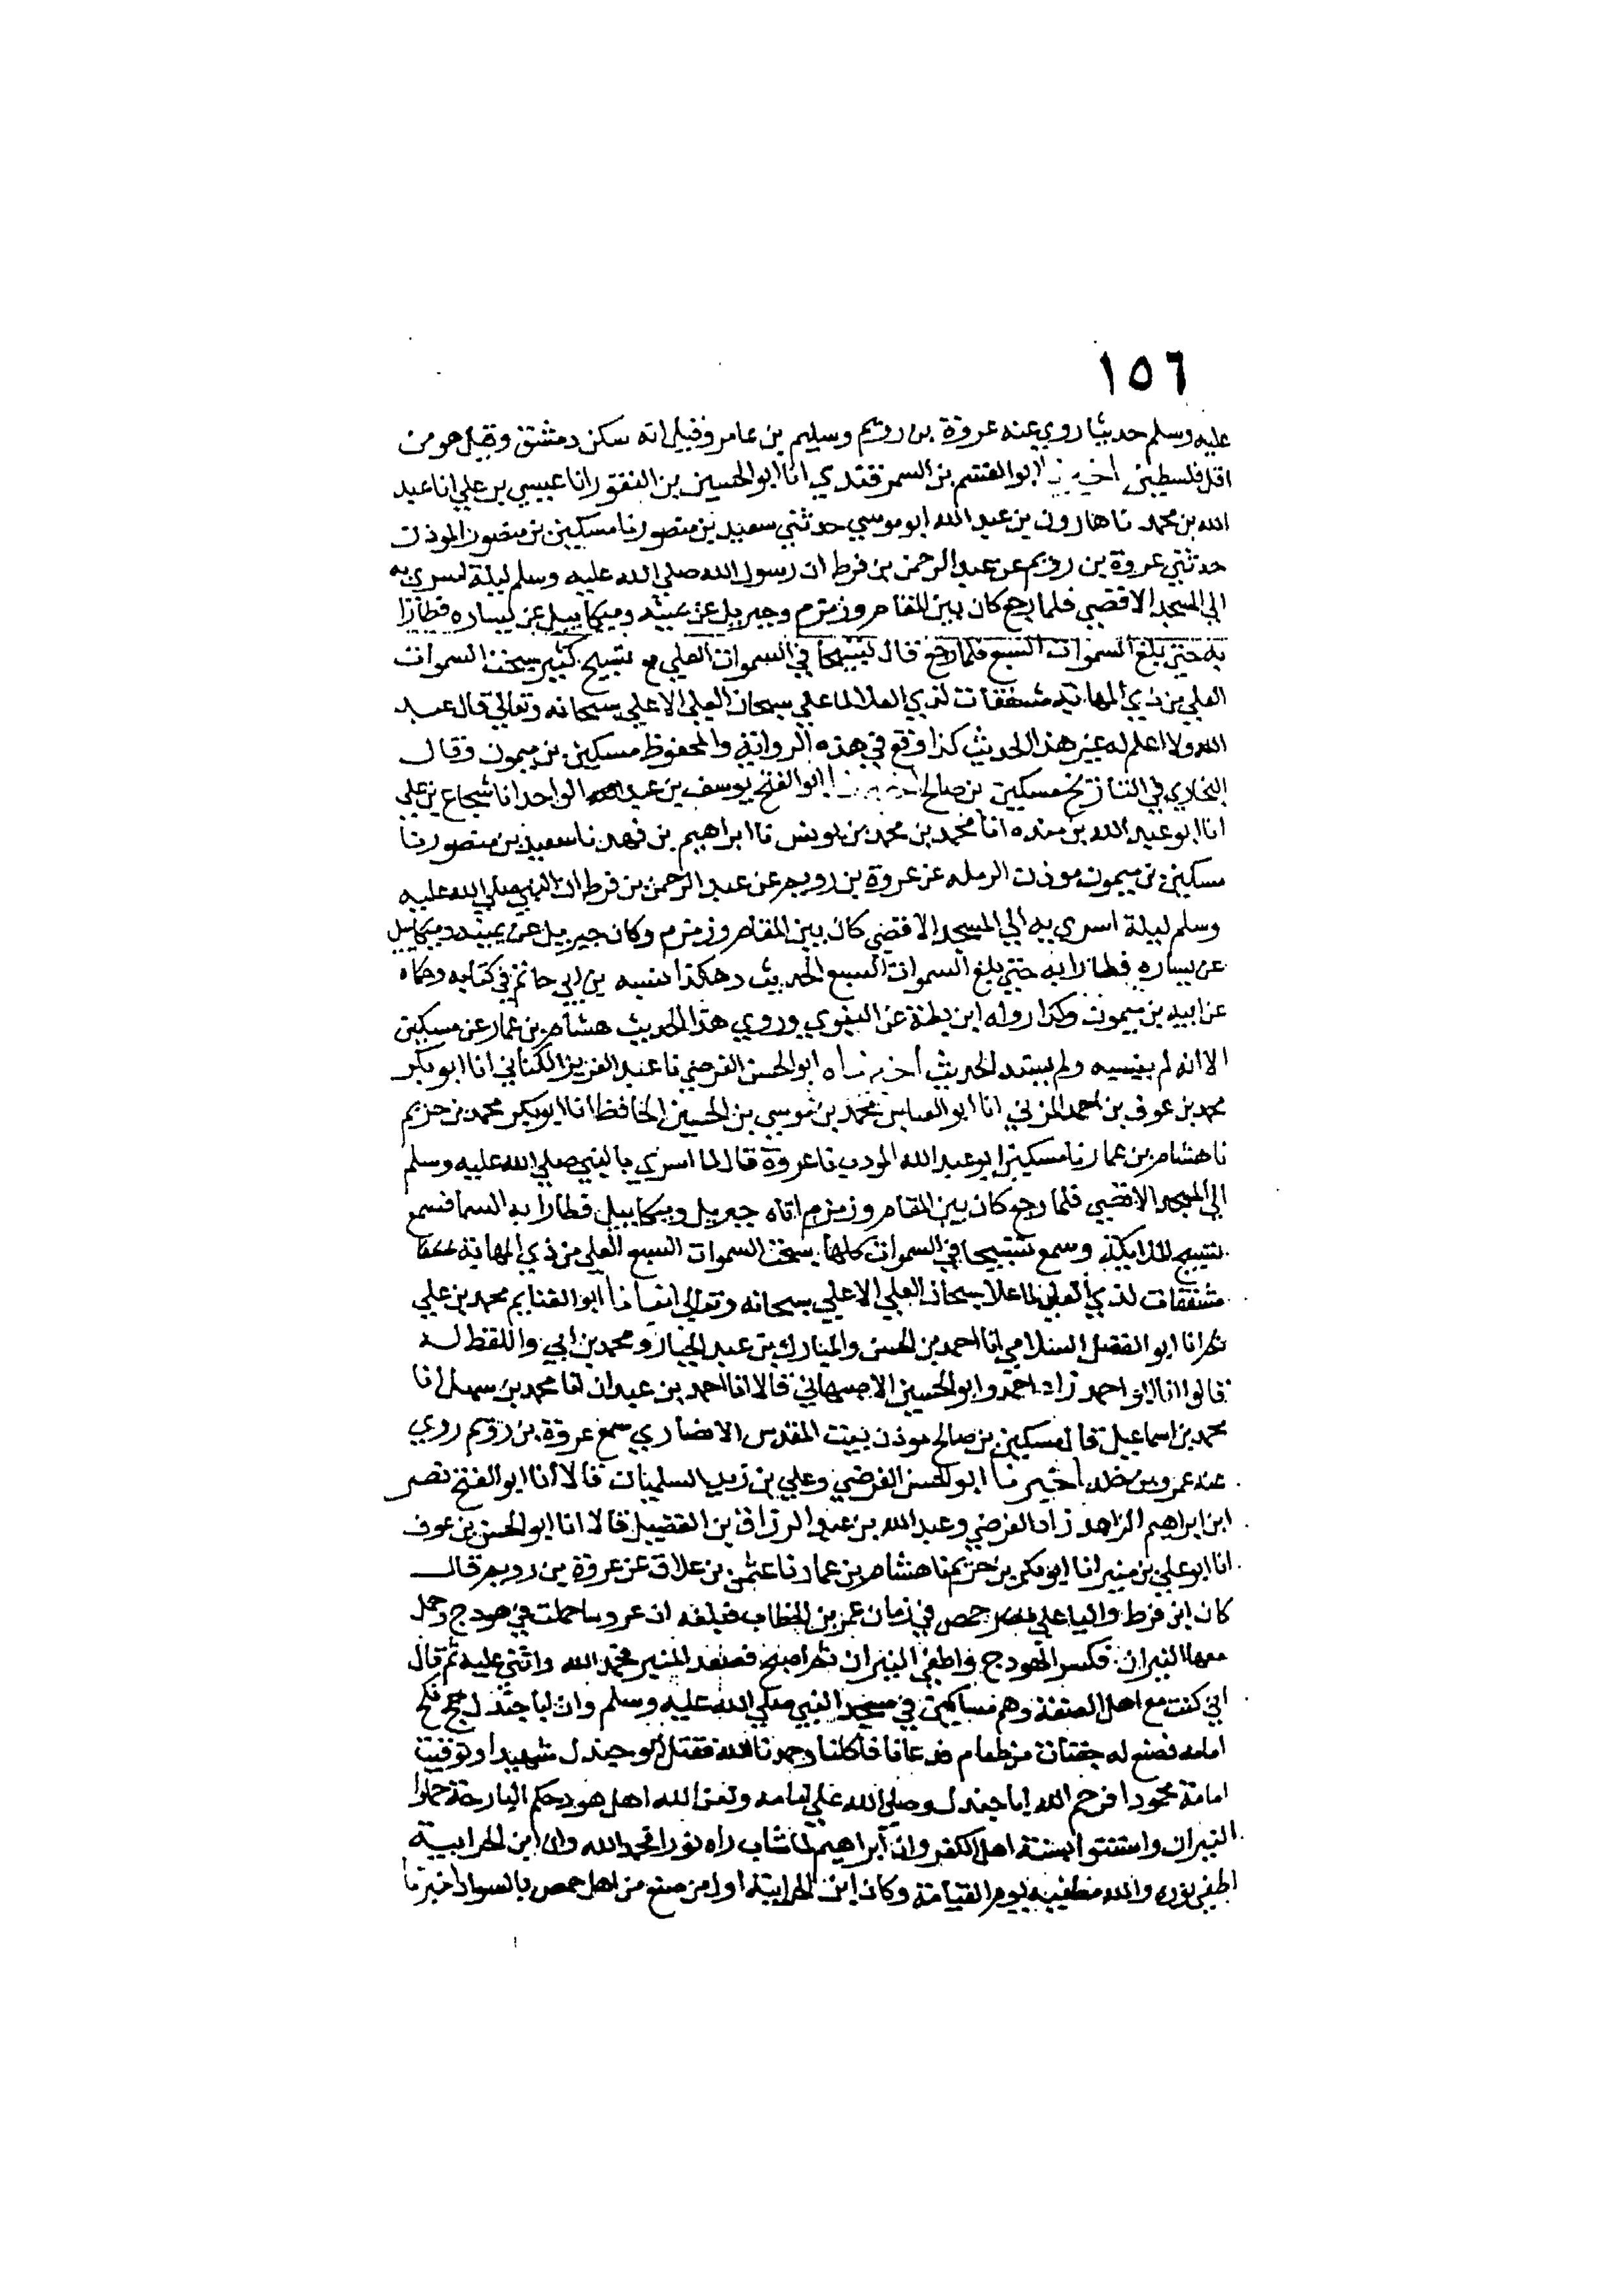 ١٥٦
عليه وسلم حديثا روي عنه عروة بن رويم وسليم بن عامر وقيل انه سكن دمشق وقيل هو من
اهل فلسطين اخبرنا ابو القسم بن السمرقندي انا ابو الحسين بن النقور انا عيسي بن علي انا عبد
الله بن محمد نا هارون بن عبد الله ابو موسي حدثني سعيد بن منصور نا مسكين بن منصور الموذن
حدثني عروة بن رويم عن عبد الرحمن بن قرط ان رسول الله صلي الله عليه وسلم ليلة اسري به
الي المسجد الاقصي فلما رجع كان بين المقام وزمزم وجبريل عن يمينه وميكاييل عن يساره فطارا
به حتي بلغ السموات السبع فلما رجع قال تسبيحا في السموات العلي مع تسبيح كثير سبحت السموات
العلي من ذي المهابة مشفقات لذي العلا لما علي سبحان العلي الاعلي سبحانه وتعالي قال عبد
الله ولا اعلم له غير هذا الحديث كذا وقع في هذه الرواية والمحفوظ مسكين بن ميمون وقال
البخاري في التاريخ مسكين بن صالح اخبرنا ابو الفتح يوسف بن عبد الواحد انا شجاع بن علي
انا ابو عبد الله بن منده انا محمد بن محمد بن يونس نا ابراهيم بن فهد نا سعيد بن منصور نا
مسكين بن ميمون موذن الرمله عن عروة بن رويم عن عبد الرحمن بن قرط ان النبي صلي الله عليه
وسلم ليلة اسري به الي المسجد الاقصي كان بين المقام وزمزم وكان جبريل عن يمينه وميكاييل
عن يساره فطارا به حتي بلغ السموات السبع الحديث وهكذا نسبه بن ابي حاتم في كتابه وحكاه
عن ابيه بن ميمون وكذا رواه ابن بطة عن البغوي وروي هذا الحديث هشام بن عمار عن مسكين
الا انه لم ينسبه ولم يسند الحديث اخبرناه ابو الحسن الفرضي نا عبد العزيز الكتاني انا ابو بكر
محمد بن عوف بن احمد المزني انا ابو العباس محمد بن موسي بن الحسين الحافظ انا ابو بكر محمد بن خزيم
نا هشام بن عمار نا مسكين ابو عبد الله المودب نا عروة قال لما اسري بالنبي صلي الله عليه وسلم
الي المسجد الاقصي فلما رجع كان بين المقام وزمزم اتاه جبريل وميكاييل فطارا به السما فسمع
تسبيح الملايكة وسمع تسبيحا في السموات كلها سبحت السموات السبع العلي من ذي المهابة
مشفقات لذي العلي لما علا سبحان العلي الاعلي سبحانه وتعالي انبانا ابو الغنايم محمد بن علي
ثم انا ابو الفضل السلامي انا احمد بن الحسن والمبارك بن عبد الجبار ومحمد بن علي واللفظ له
قالوا انا ابو احمد زاد احمد وابو الحسين الاصبهاني قالا انا احمد بن عبدان انا محمد بن سهل انا
محمد بن اسماعيل قال مسكين بن صالح موذن بيت المقدس الانصاري سمع عروة بن رويم روي
عنه عمرو بن خلد اخبرنا ابو الحسن الفرضي وعلي بن زيد السلميان قالا انا ابو الفتح نصر
ابن ابراهيم الزاهد زاد الفرضي وعبد الله بن عبد الرزاق بن الفضيل قالا انا ابو الحسن بن عوف
انا ابو علي بن منير انا ابو بكر بن خزيم نا هشام بن عمار نا عثمن بن علاق عن عروة بن رويم قال
كان ابن قرط واليا علي حمص في زمان عمر بن الخطاب فبلغه ان عروسا حملت في هودج وحمل
معها النيران فكسر الهودج واطفي النيران ثم اصبح فصعد المنبر فحمد الله واثني عليه ثم قال
اني كنت مع اهل الصفة وهم مساكين في مسجد النبي صلي الله عليه وسلم وان ابا جندل نكح
امامه فصنع له جفنتان من طعام فدعانا فاكلنا وحمدنا الله فقتل ابو جندل شهيدا وتوفيت
امامة محمودا فرحم الله ابا جندل وصلي الله علي امامه ولعن الله اهل هودجكم البارحة حملوا
النيران واستنوا بسنة اهل الكفر وان ابراهيم لما شاب راه نورا فحمد الله وان ابن الحرابية
اطفي نوره والله مطفيه يوم القيامة وكان ابن الحرابية اول من صبغ من اهل حمص بالسواد اخبرنا